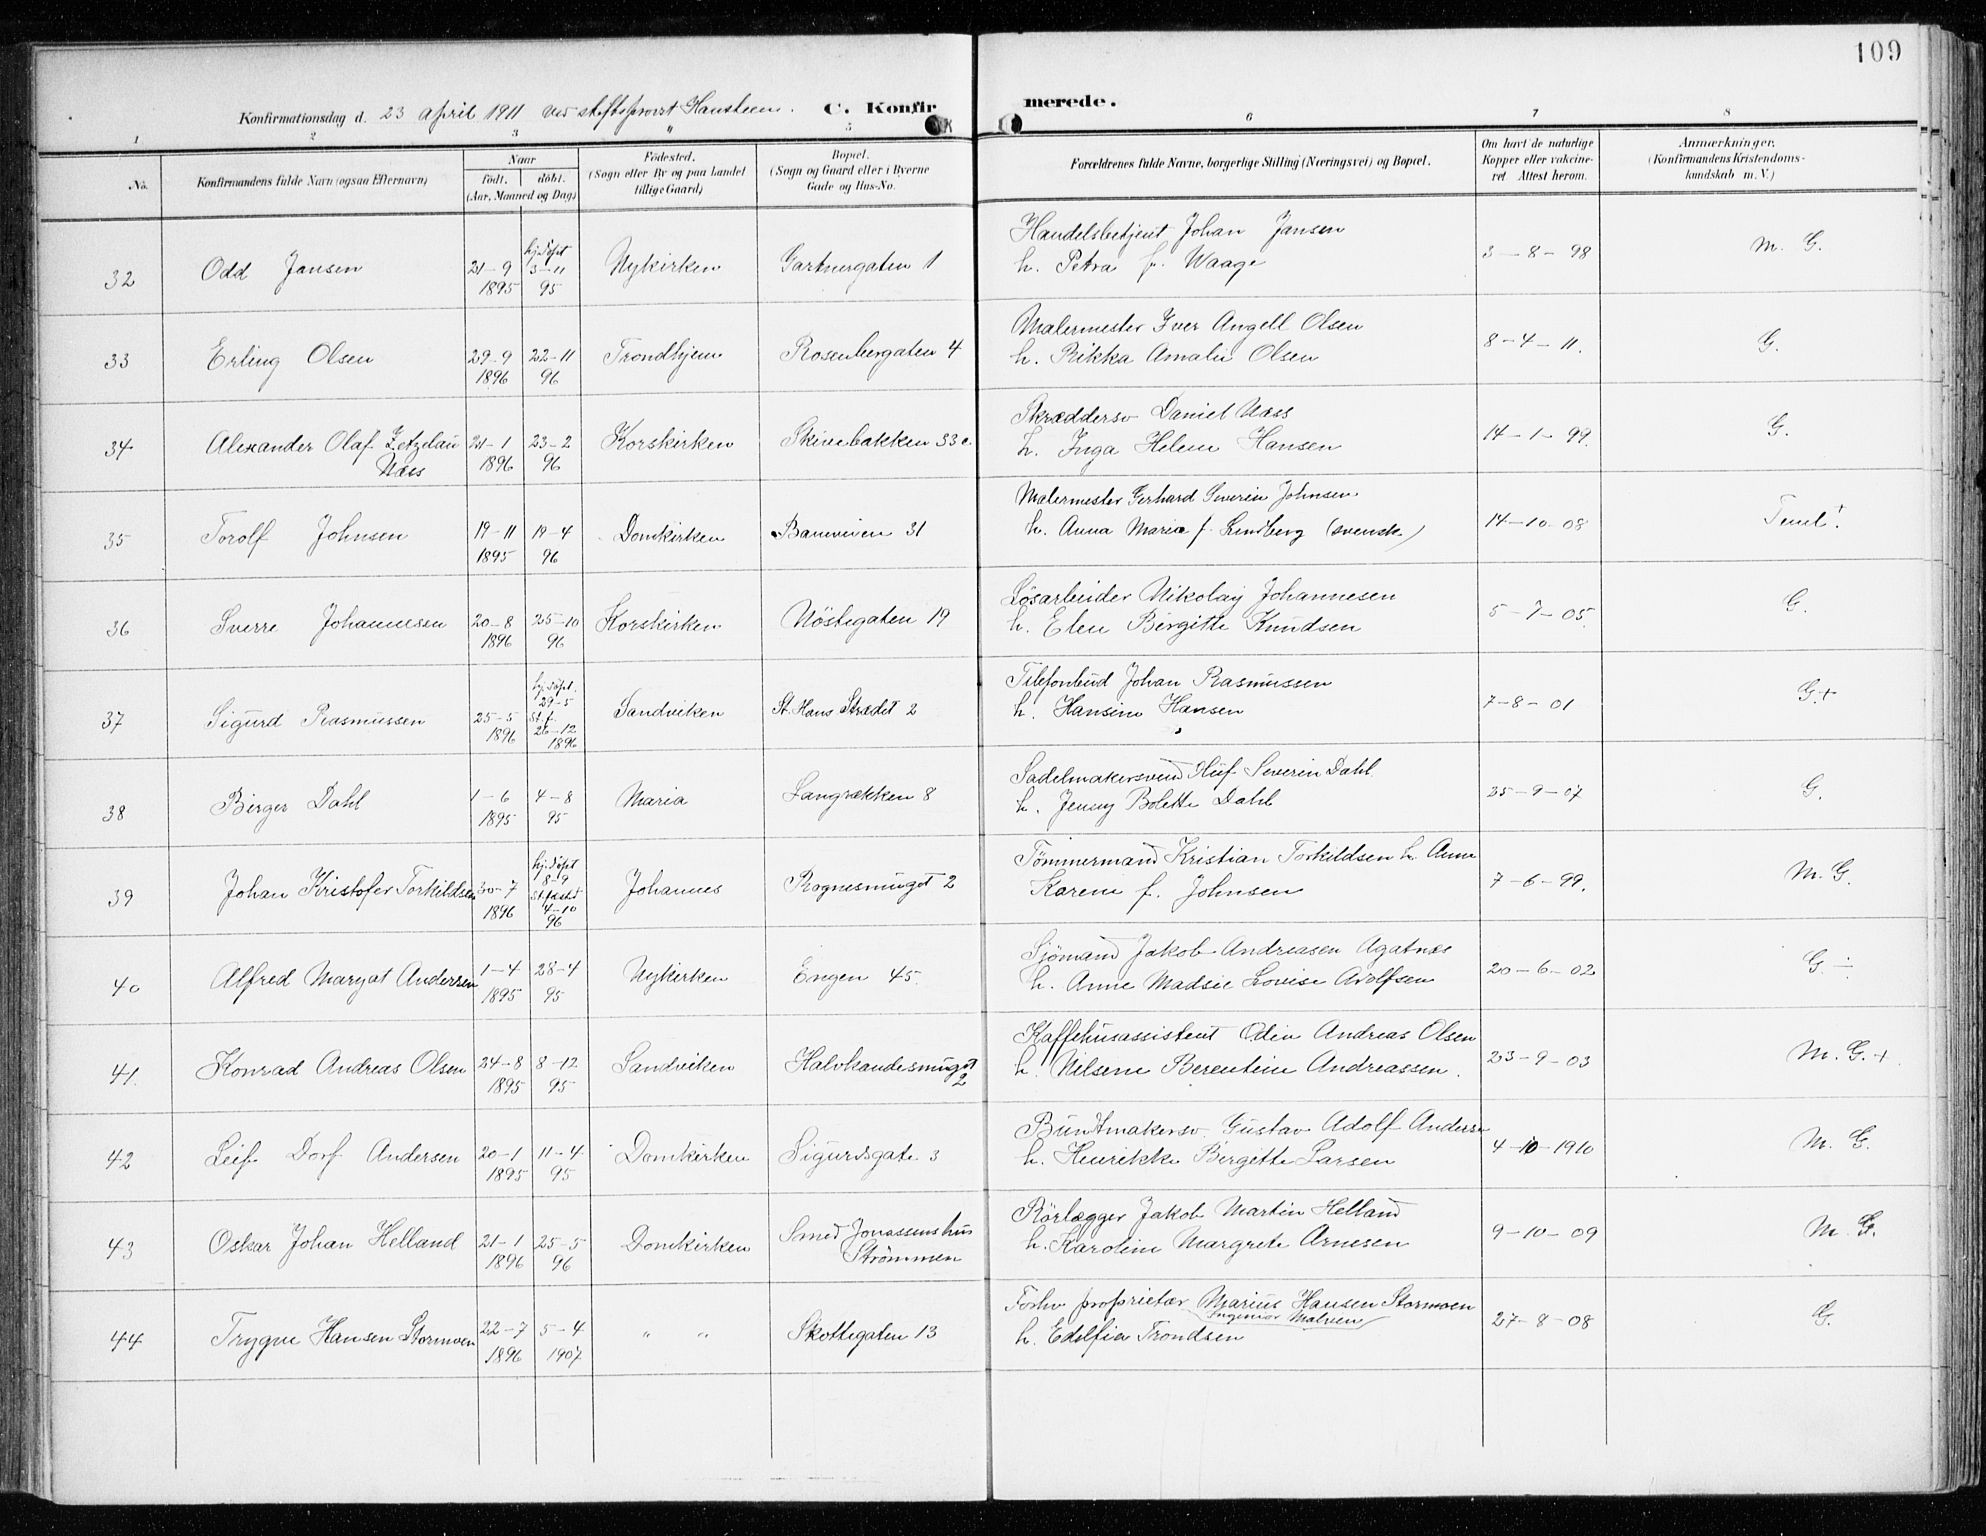 109
Konfirmationsdag d. 23 April 1911 ved stiftsprovst Hansteen. C. Konfirmerede.
1 2 3 " 5 6 7 8
No.
Konfirmandens fulde Navn (ogsaa Efternavn)
Naar
født. døbt.
(Aar, Maaned og Dag)
Fødested.
(Sogn eller By og paa Landet
tillige Gaard)
Bopæl.
(Sogn og Gaard eller i Byerne
Gade og Hus-No.
Forældrenes fulde Navne, borgerlige Stilling (Næringsvei) og Bopæl.
Om havt de naturlige
Kopper eller vakcine-
ret Attest herom.
Anmærkninger.
(Konfirmandens Kristendoms-
kundskab m. V.)
32 Odd Jansen 21-9 1895 hj. døpt 3-11 95 Nykirken Gartnergaten 1
Handelsbetjent Johan Jansen
h. Petra f. Waage
3-8-98 M. G.
33 Erling Olsen 29-9 1896 22-11 96 Trondhjem Rosenbergaten 4
Malermester Iver Angell Olsen
h. Rikka Amalie Olsen
8-4-11. G.
34 Alexander Olaf Zetzlau Næss 21-1 1896 23-2 96 Korskirken Skivebakken 33 c.
Skræddersv Daniel Næss
h. Inga Helene Hansen
14-1-99. G.
35 Torolf Johnsen 19-11 1895 19-4 96 Domkirken Baneveien 31
Malermester Gerhard Severin Johnsen
h. Anna Maria f. Lindberg (svensk)
14-10-08 Temt.+
36 Sverre Johannesen 20-8 1896 25-10 96 Korskirken Nöstegaten 19
Løsarbeider Nikolay Johannesen
h. Elen Birgitte Knudsen
5-7-05. G.
37 Sigurd Rasmussen 25-5 1896 hj. døpt. 29-5 St. f. 26-12 1896 Sandviken St. Hans Strædet 2
Telefonbud Johan Rasmussen
h. Hansine Hansen
7-8-01 G+
38 Birger Dahl 1-6 1895 4-8 95 Maria Langrækken 8
Sadelmakersvend Oluf Severin Dahl.
h. Jenny Bolette Dahl
25-9-07 G.
39 Johan Kristofer Torkildsen 30-7 1896 hj. døpt 8-9 St. fæstet 4-10 96 Johannes Rognesmuget 2
Tömmermand Kristian Torkildsen h. Anne
Karene f. Johnsen
7-6-99. M. G.
40 Alfred Maryat Andersen 1-4 1895 28-4 95 Nykirken Engen 45.
Sjömand Jakob Andreasen Agatnes
h. Anne Madsie Lovise Adolfsen
20-6-02 G ÷
41. Konrad Andreas Olsen 24-8 1895 8-12 95 Sandviken Halvkandesmuget 2
Kaffehusassistent Odin Andreas Olsen
h. Nilsine Berentine Andreassen.
23-9-03 M. G.+
42 Leif Dorf Andersen 20-1 1895 11-4 95 Domkirken Sigurdsgate 3
Buntmakersv Gustav Adolf Anderse
h. Henrikke Birgitte Larsen
4-10-1910 M. G.
43 Oskar Johan Helland 21-1 1896 25-5 96 Domkirken Smed Jonassens hus Strømmen
Rörlægger Jakob Martin Helland
h. Karoline Margrete Arnesen
9-10-09 M. G.
44 Trygve Hansen Stormoen 22-7 1896 5-4 1907 " " Skottegaten 13
Forhv proprietær Marius Hansen Stormoen
Ingeniör Malven
h. Edelfia Trondsen
27-8-08 G.